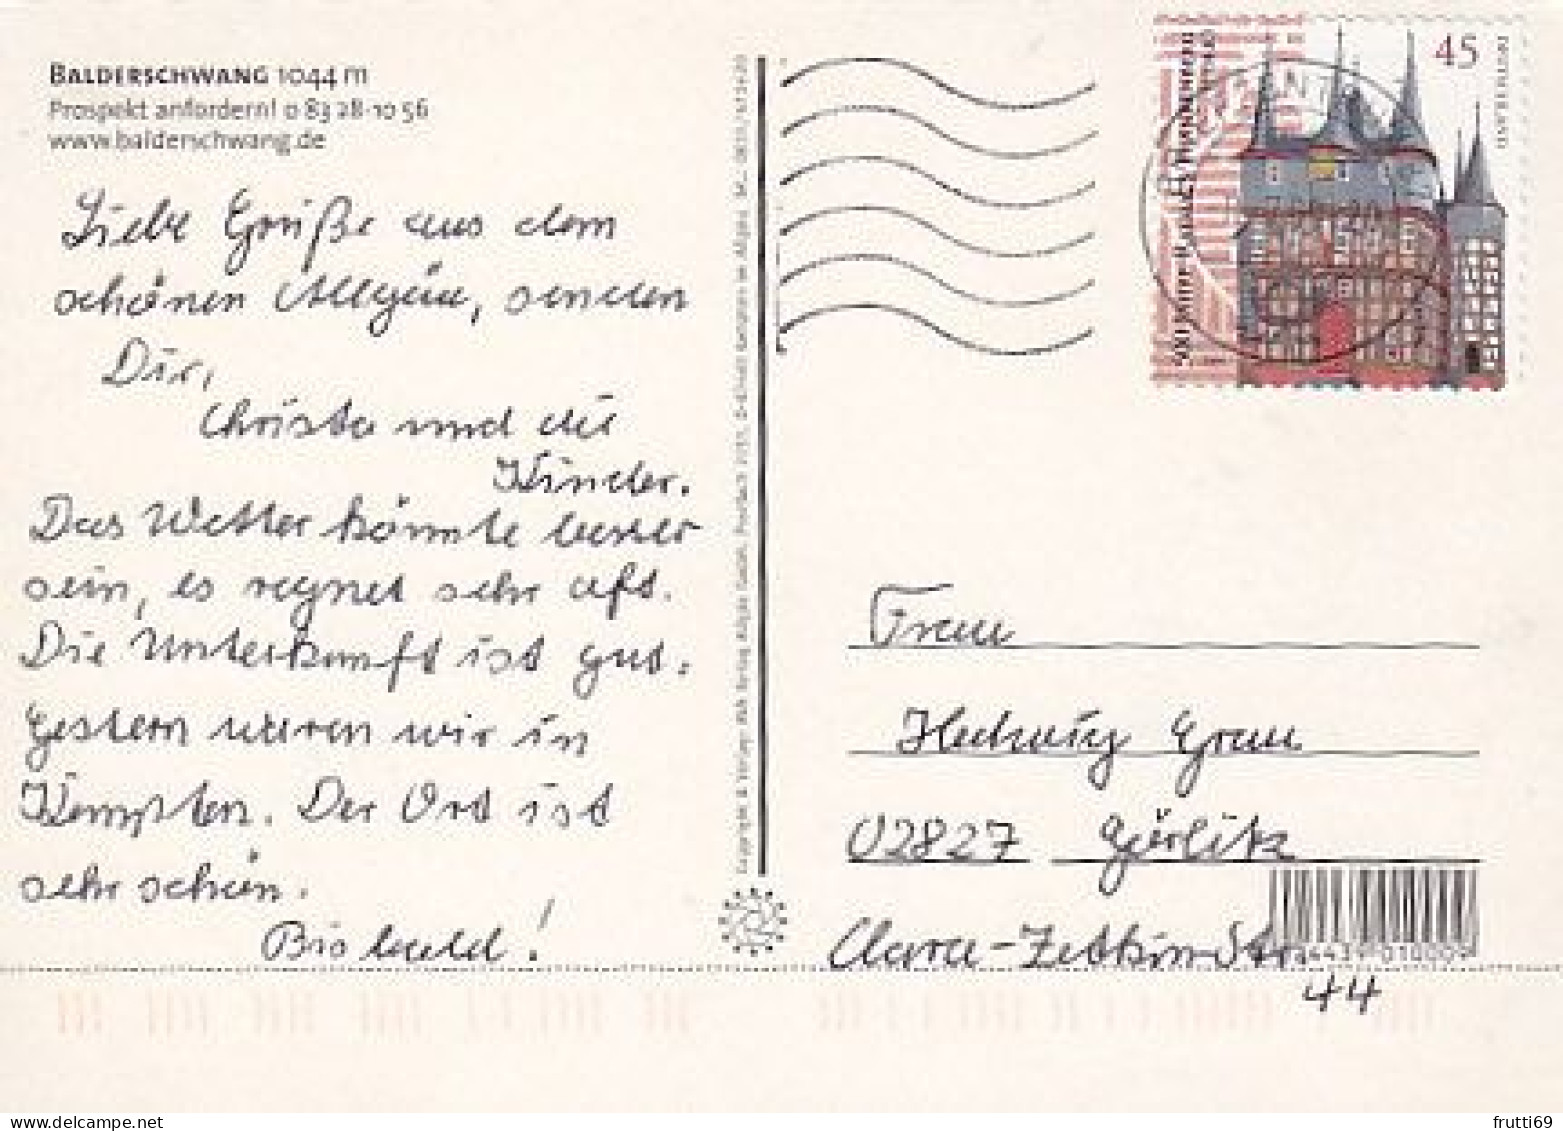 BALDERSCHWANG 1044 m
Prospekt anfordern! 0 83 28-10 56
www.balderschwang.de
Liebe Grüße aus dem
schönen Allgäu, senden
Dir,
Christa und die
Kinder.
Das Wetter könnte besser
sein, es regnet sehr oft.
Die Unterkunft ist gut.
Gestern waren wir in
Kempten. Der Ort ist
sehr schön.
Bis bald!
45
DEUTSCHLAND
500 Jahre Rathaus Frankenberg
Frau
Hedwig Grau
02827 Görlitz
Clara-Zetkin-Str.
44
frutti69